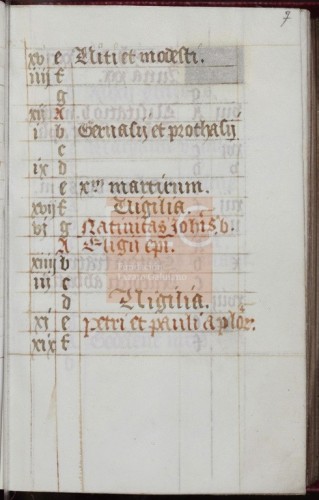 7
xv e Viti et modesti.
iiij f
g
xij A
i b Geruasij et prothasij
c
ix d
e x mͬ martirum.
xvij f Vigilia.
vj g Natiuitas Johis b.
A Eligii epi.
xiiij b
iij c
d Vigilia.
xi e Petri et pauli aplor.
xix f